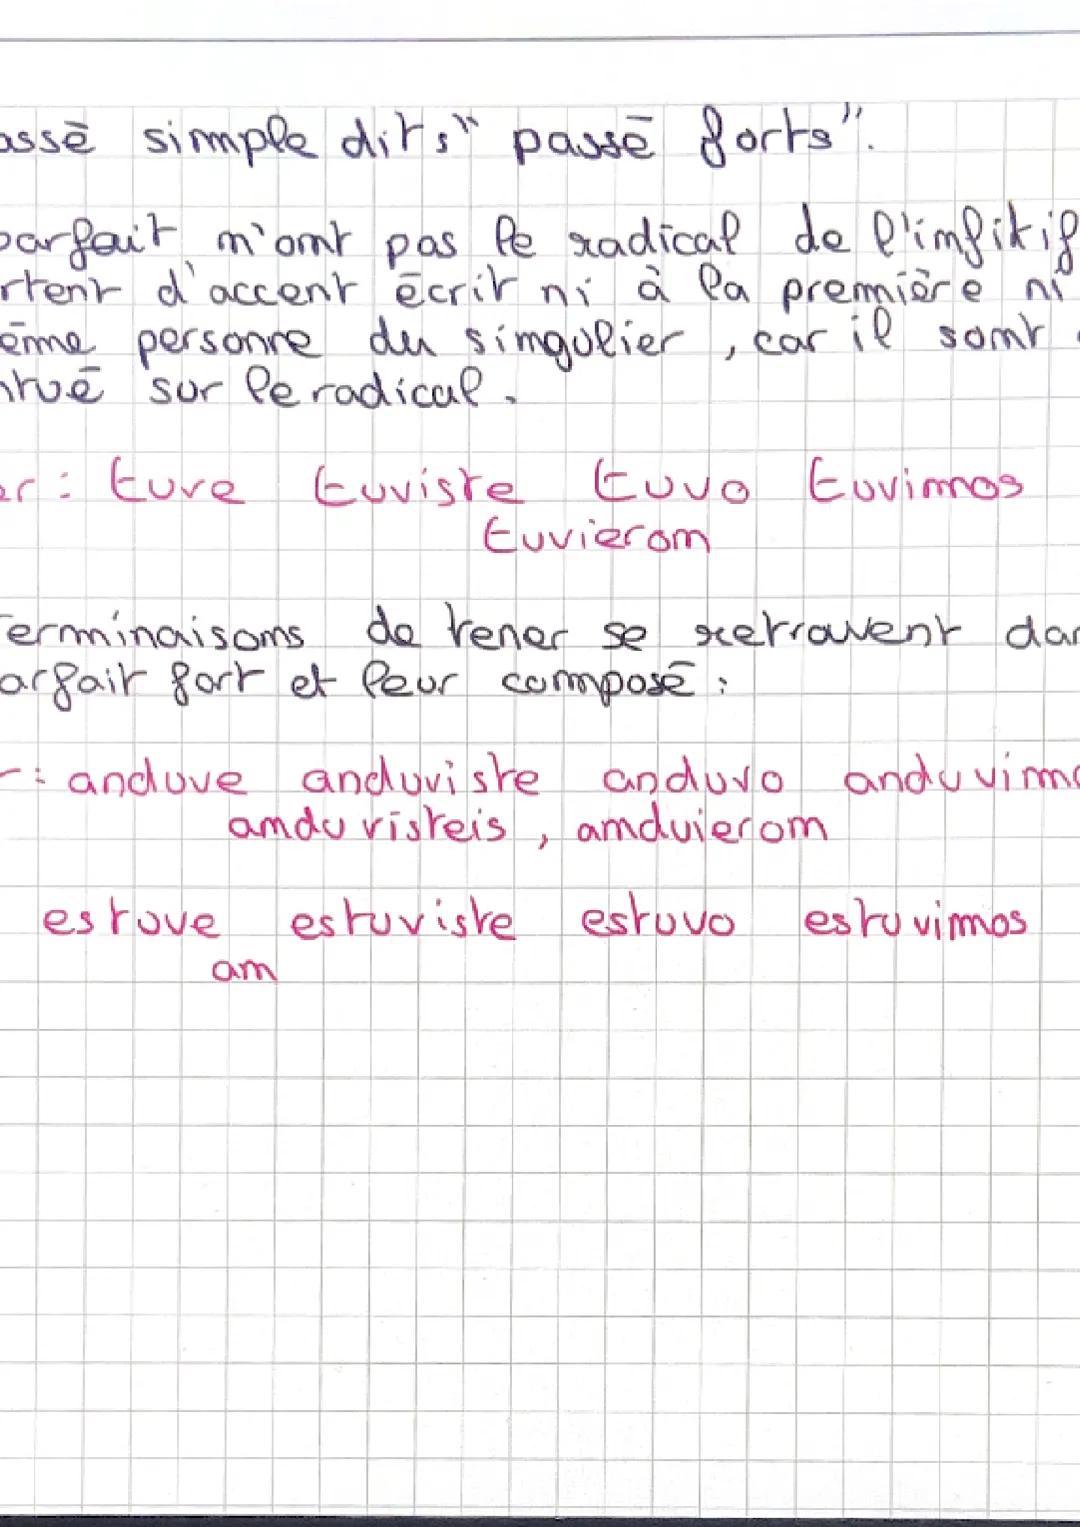 assé simple dits "passé forts".
parfait n'ont pas le radical de l'infitif
rtent d'accent écrit ni à la première ni
ème personne du singulier, car il sont
ntué sur le radical.
er: tuve tuviste tuvo tuvimos
tuvieron
Terminaisons de tener se retrouvent dan
arfait fort et leur composé:
r: anduve anduviste anduvo anduvimo
anduvisteis, anduieron
estuve estuviste estuvo estuvimos
an